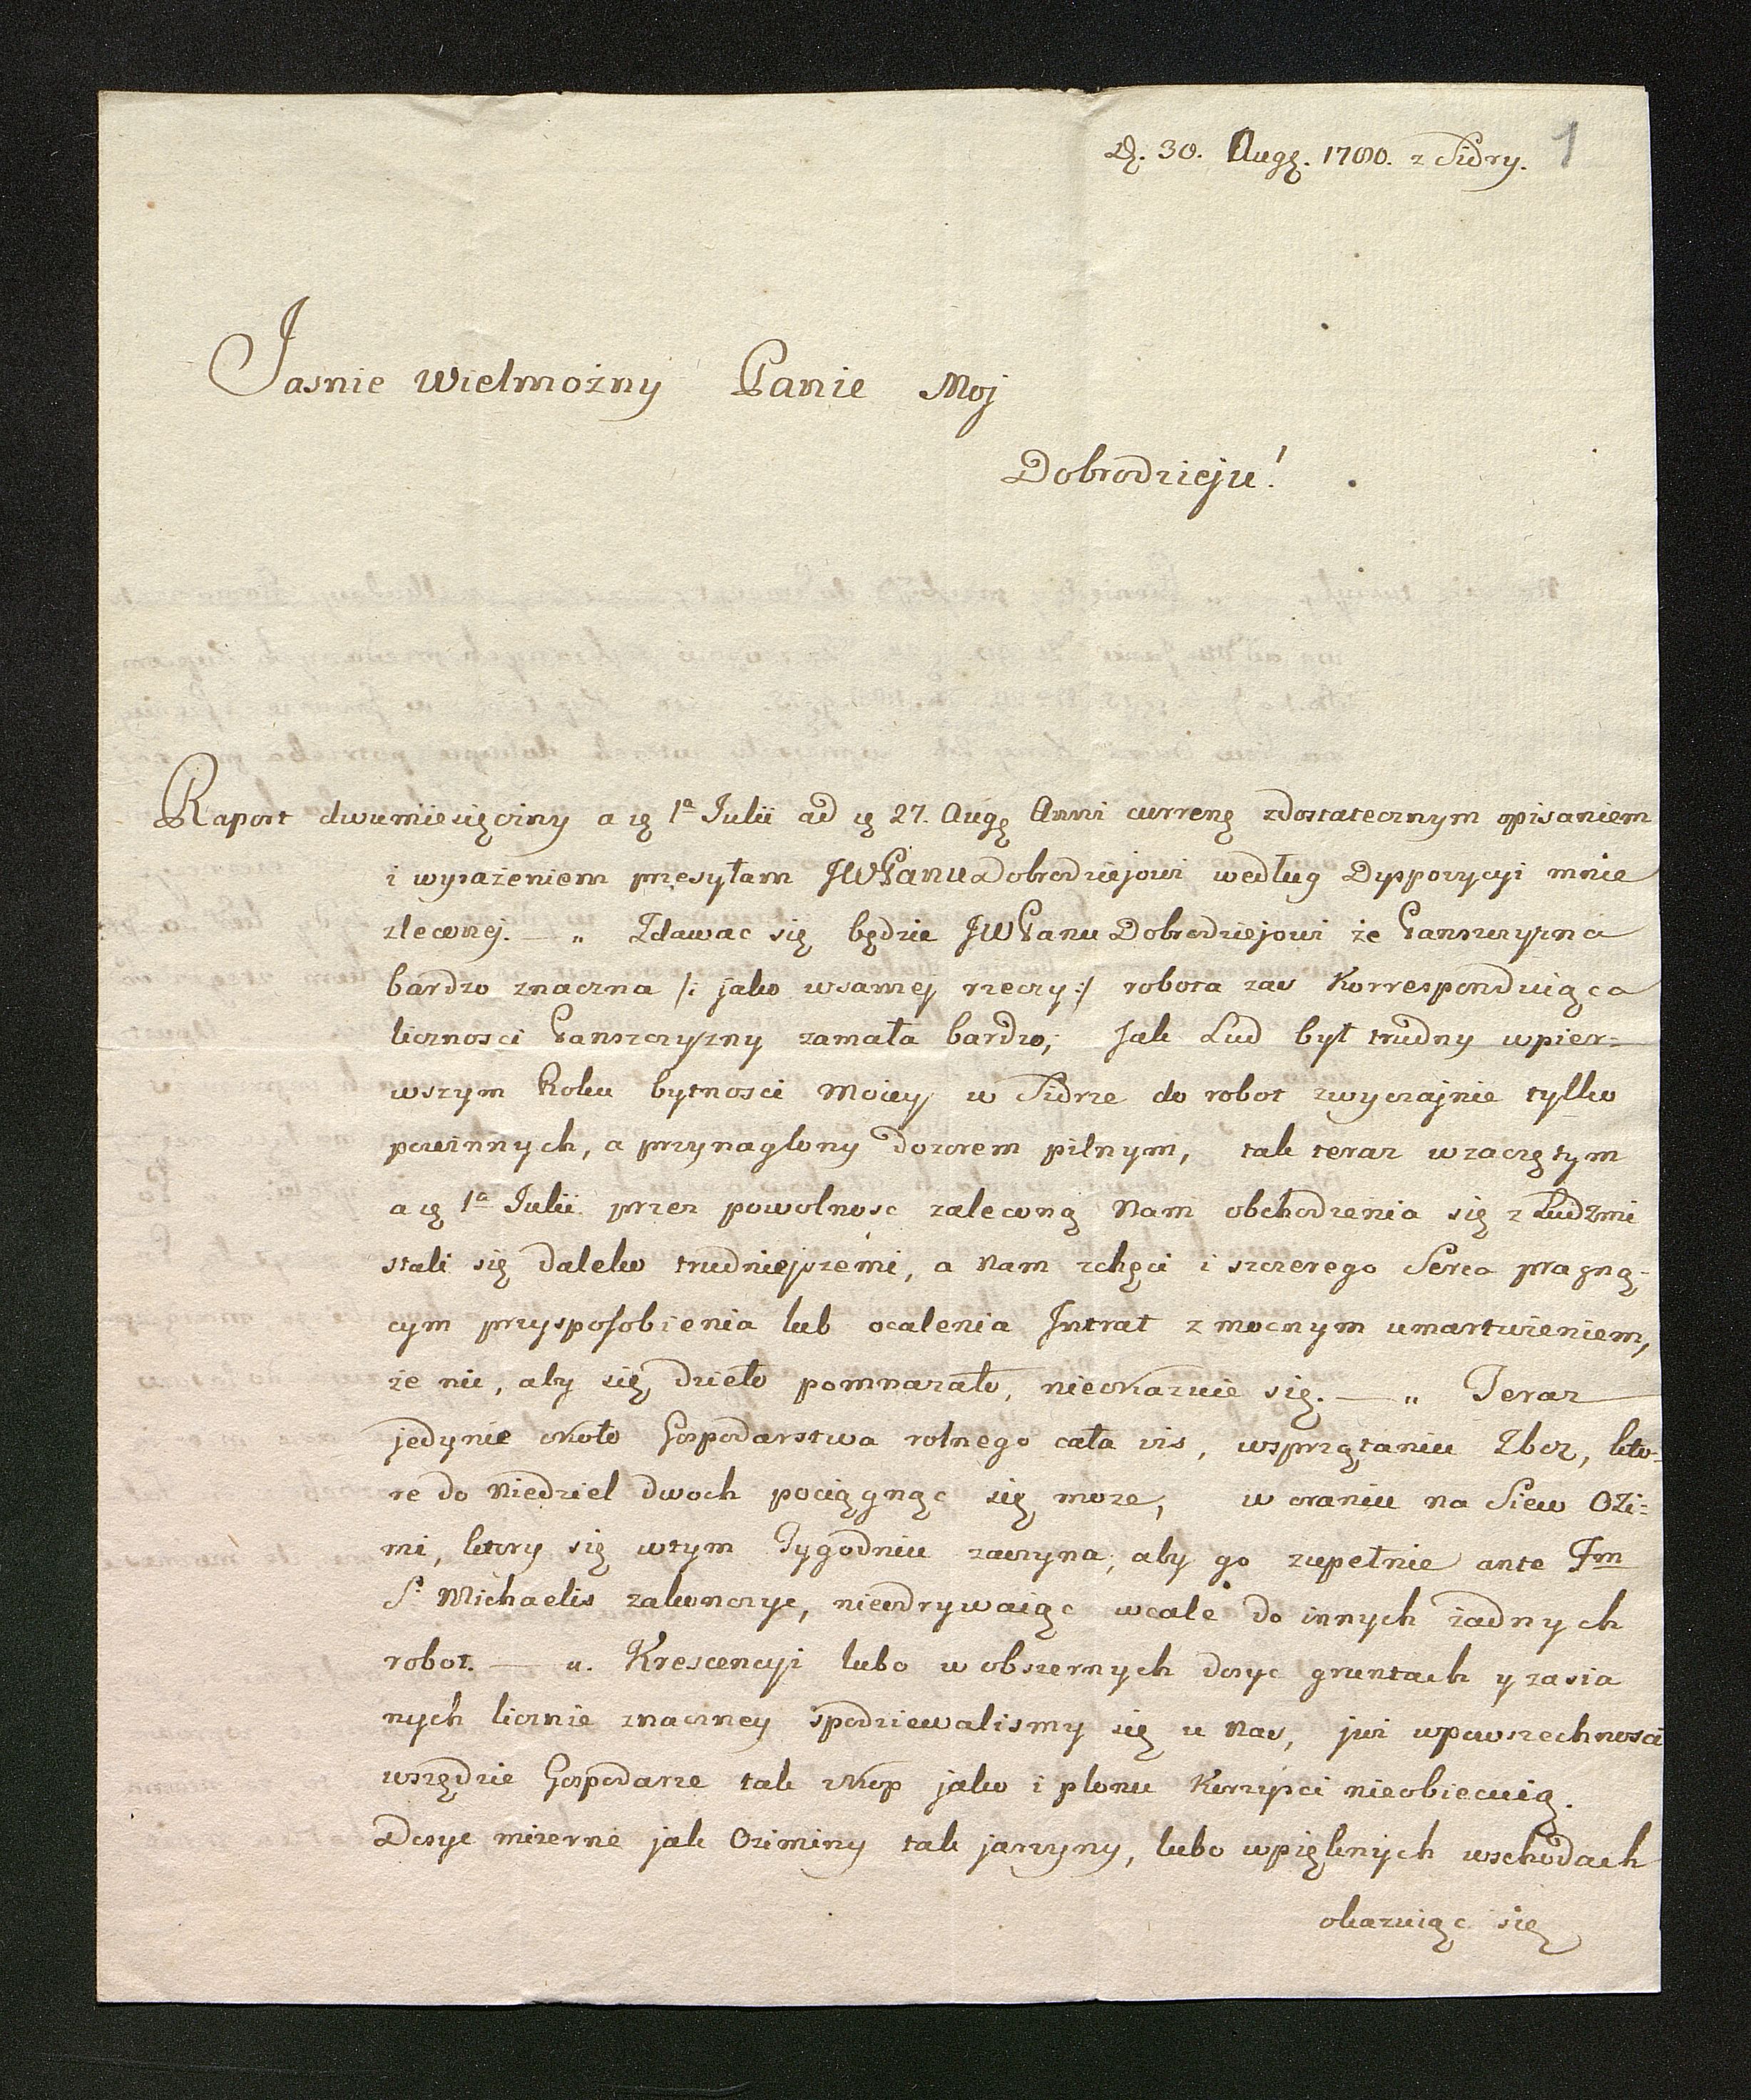 D. 30. Augę. 1780. z Sidry. 1
Jasnie Wielmożny Panie Moj
Dobrodzieju!
Raport dwumiesięczny a 1ª Julii ad 27. Augę Anni currenę zdostatecznym opisaniem
i wyrażeniem przesyłam JWPanu Dobrodziejowi według Dyspozycyi mnie
zleconej. — „ Zdawac się będzie JWPanu Dobrodziejowi że Panszczyzna
bardzo znaczna /: jako wsamej rzeczy :/ robota zas Korrespondująca
licznosci Panszczyzny zamała bardzo; Jak Lud był trudny wpier=
wszym Roku bytnosci Moiey w Sidrze do robot zwyczajnie tylko
powinnych, a przynaglony dozorem pilnym, tak teraz wzaczętym
a 1ª Julii przez powolnosc zaleconą Nam obchodzenia się z Ludzmi
stali się daleko trudniejszemi, a Nam zchęci i szczerego Serca pragną=
cym przysposobienia lub ocalenia Intrat z mocnym umartwieniem,
że nic, aby się dzieło pomnażało, nieokazuie się. — „ Teraz
jedynie około Gospodarstwa rolnego cała vis, wsprzątaniu Zboż, kto=
re do Niedziel dwoch pociągnąc się może, w oraniu na Siew Ozi=
mi, ktory się wtym Tygodniu zaczyna, aby go zupełnie ante Fm
S. Michaelis zakonczyc, nieodrywaiąc wcale do innych żadnych
robot. — „. Krescencyi lubo w obszernych dosyc gruntach y zasia
nych licznie znaczney spodziewalismy się u Nas, już wpowszechnosci
wszędzie Gospodarze tak zkop jako i plonu Korzysci nieobiecuią.
Dosyc mizerne jak Oziminy tak jarzyny, lubo wpięknych wschodach
okazuiąc się